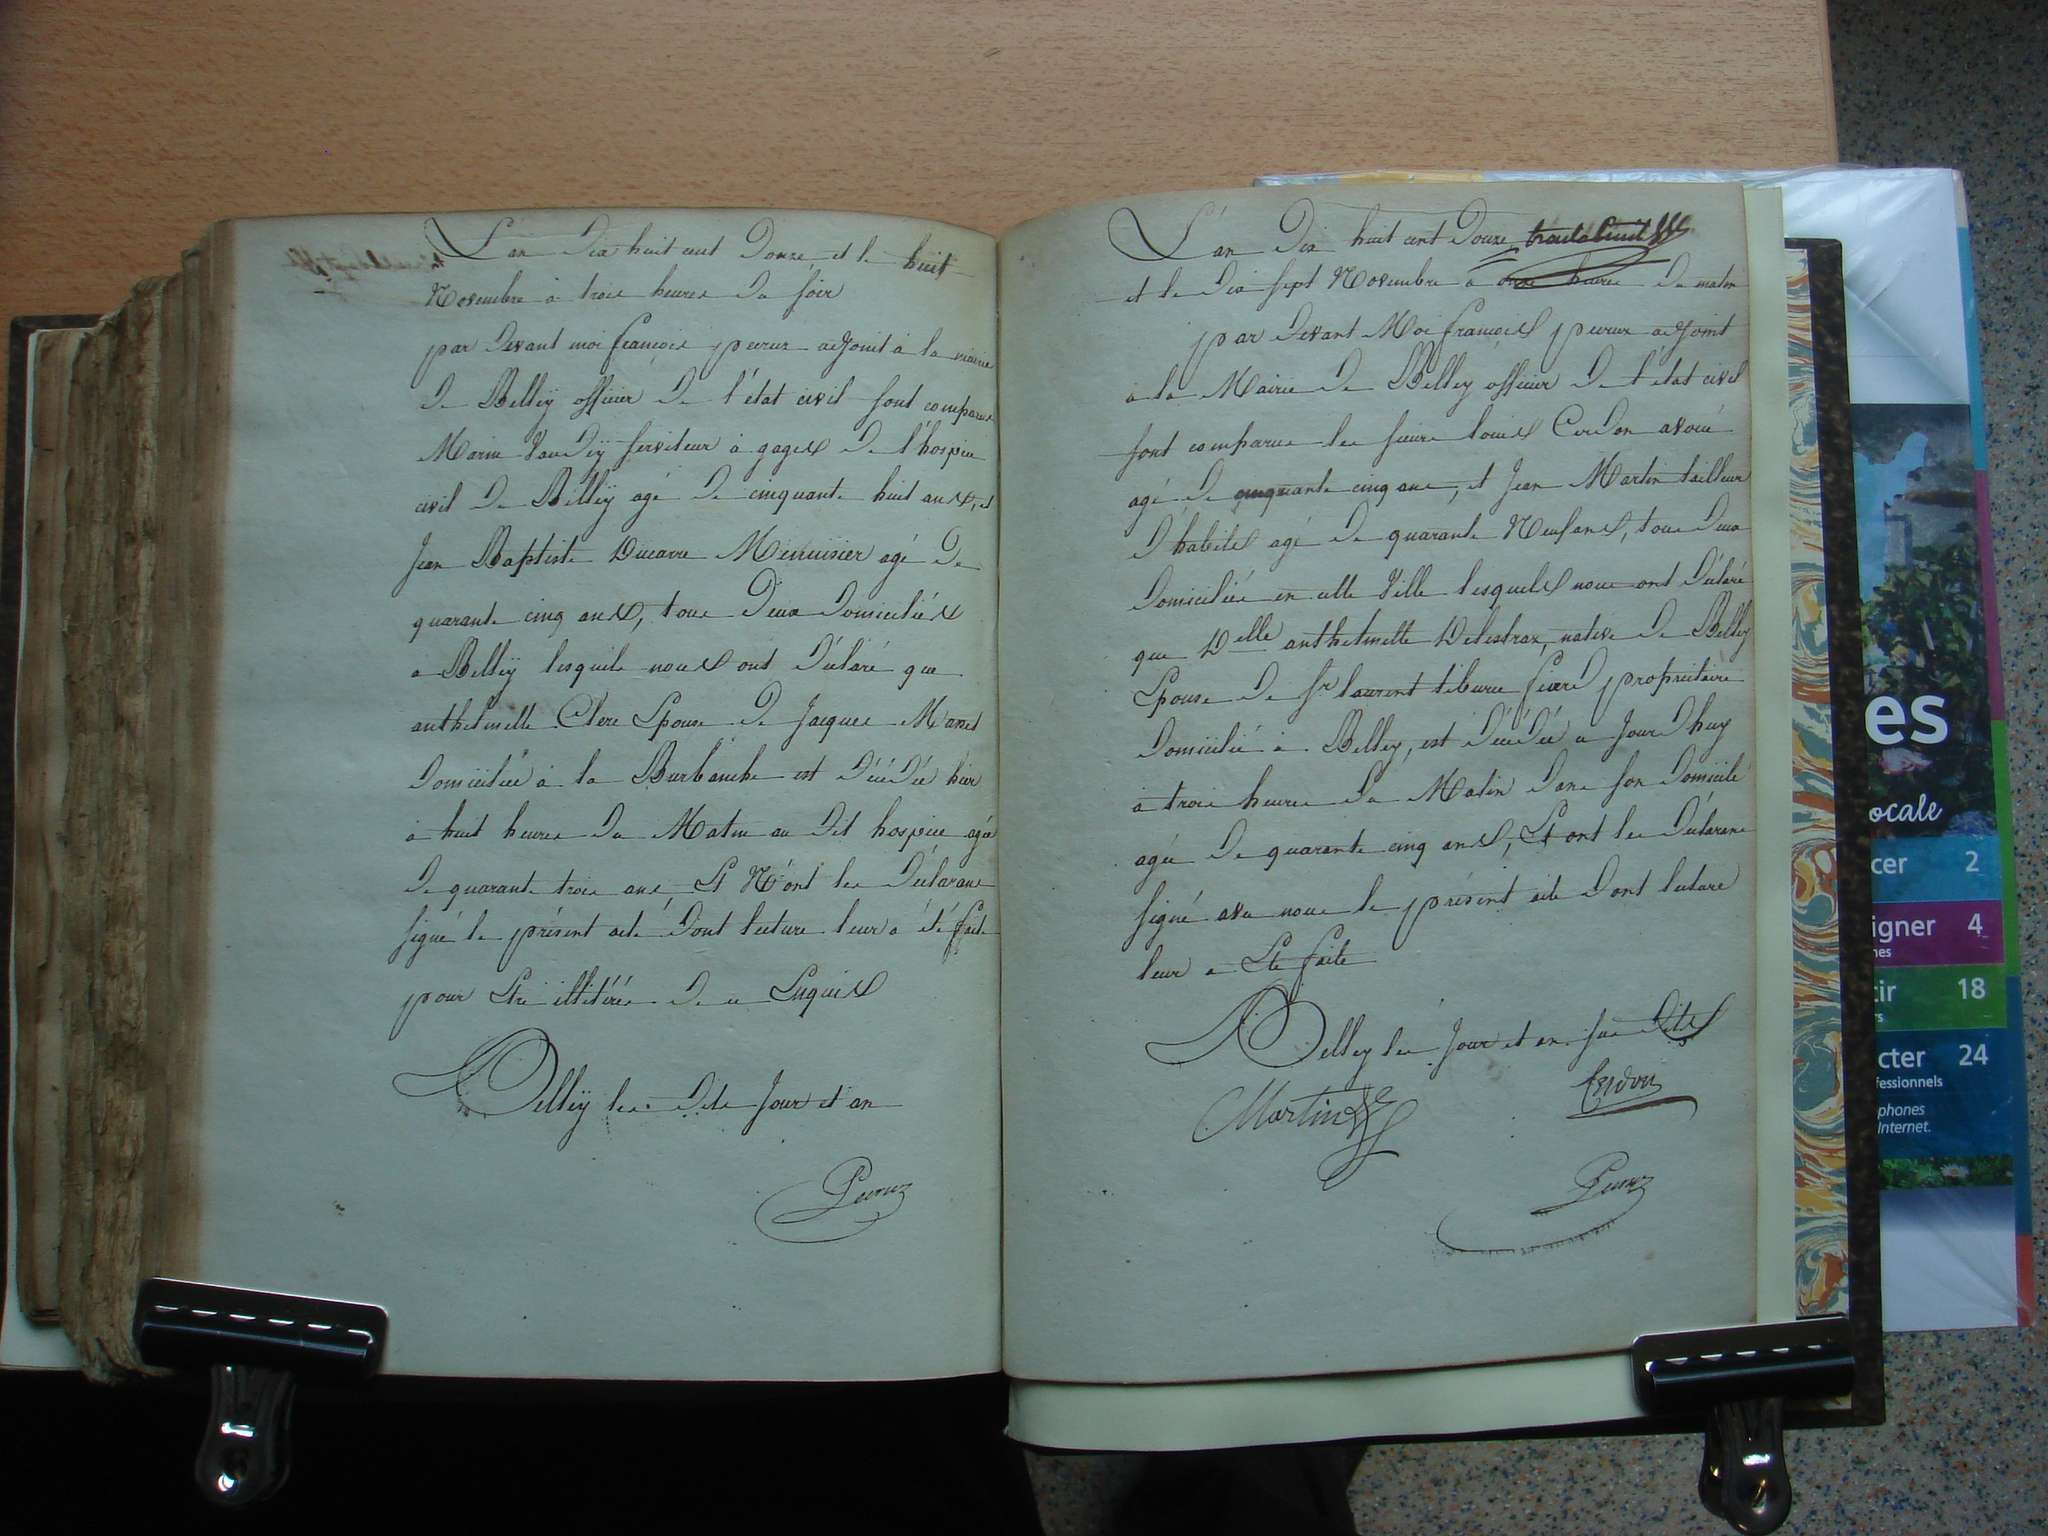 L'an Dix huit cent Douze, et le huit
Novembre à trois heures Du soir
par Devant moi françois peurux adjoint à la mairie
De Belleÿ officier De l'état civil sont comparus
Marin Vaudeÿ serviteur à gages De l'hospice
civil De Belleÿ agé De cinquante huit ans, et
Jean Baptiste Ducarre Menuisier agé De
quarante cinq ans, tous Deux Domiciliés
a Belleÿ lesquels nous ont Déclaré que
anthelmette Clerc Epouse De Jacques
Domiciliée à la Burbanche est Décédée hier
à huit heures Du Matin au Dit hospice agée
De quarante trois ans, Et N'ont les Déclarans
signé le présent acte Dont lecture leur a été faite
pour Etre illitérés De ce Enquis
Belleÿ les Dits Jour et an
L'an Dix huit cent Douze,
et le Dix sept Novembre à onze heures Du matin
par Devant Moi françois peurux adjoint
a la Mairie De Belley officier De l'état civil
sont comparus les sieurs louis Cerdon avoué
agé De cinquante cinq ans, et Jean Martin tailleur
D'habits agé De quarante Neuf ans, tous Deux
Domiciliés en cette Ville lesquels nous ont Déclaré
que Delle anthelmette Delestraz, native De Belley
Epouse De Sr laurent tiburce propriétaire
Domicilié à Belley, est Décédée aJourDhuy
à trois heures Du Matin Dans son Domicile
agée De quarante cinq ans, Et ont les Déclarans
signé avec nous le présent acte Dont lecture
leur a Eté faite
Belley les Jour et an sus Dits
Martin
Cerdon
es
ocale
cer 2
igner 4
nes
tir 18
rs
cter 24
fessionnels
phones
Internet.